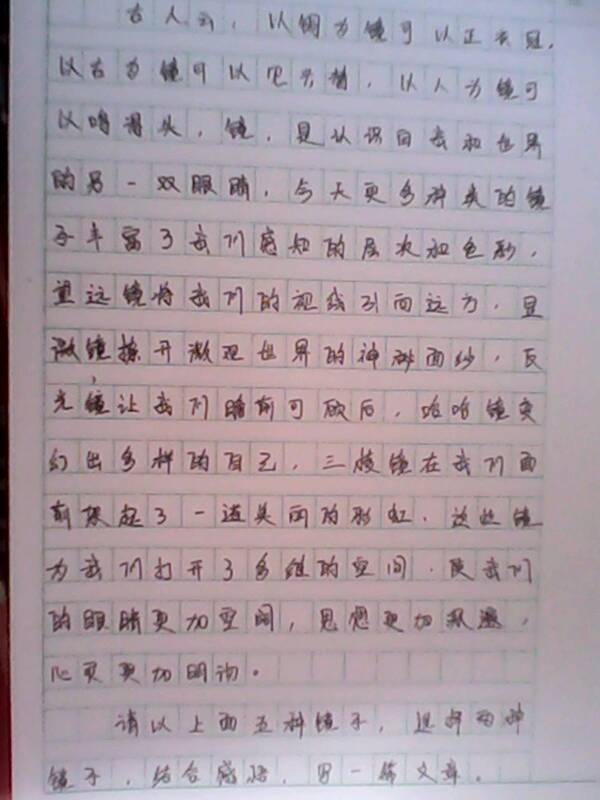 古人云，以铜为镜可以正衣冠，
以古为镜可以见兴替，以人为镜可
以明得失，镜，是认识自我和世界
的另一双眼睛，今天更多种类的镜
子丰富了我们感知的层次和色彩，
望远镜将我们的视线引向远方，显
微镜撩开微观世界的神秘面纱，反
光镜让我们瞻前可顾后，哈哈镜变
幻出多样的自己，三棱镜在我们面
前架起了一道美丽的彩虹．这些镜
为我们打开了多维的空间．使我们
的眼睛更加空阔，思想更加飘逸，
心灵更加明询。
请以上面五种镜子，选择两种
镜子，结合感悟，写一篇文章。